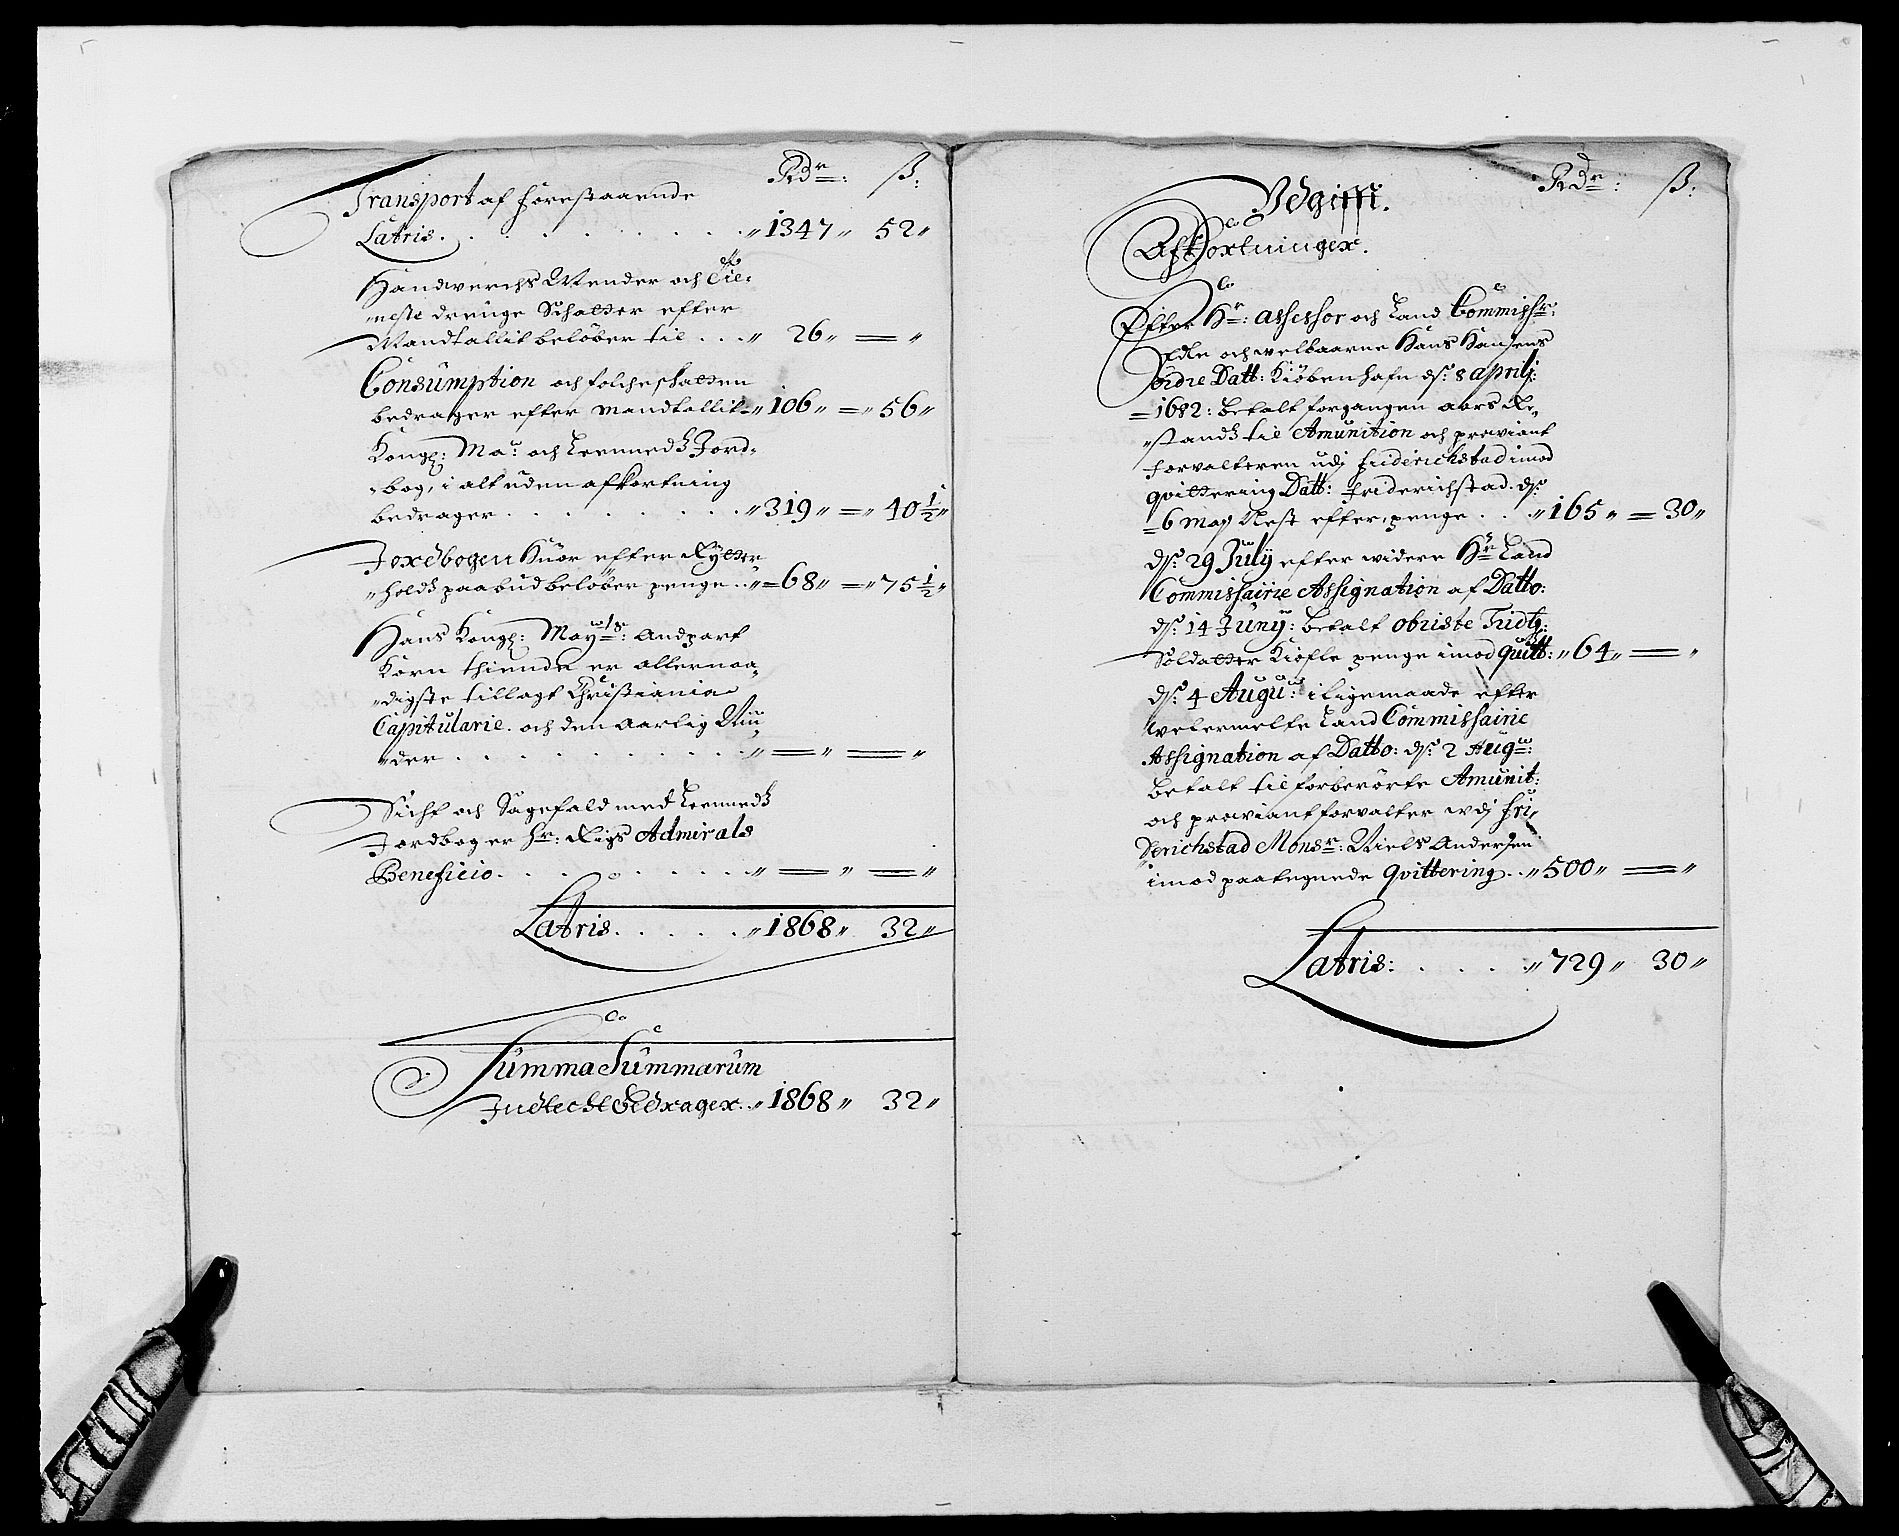 Rdr: ß:
Transport af forestaaende
Latris. . . . . . . . . . „ 1347 „ 52 „
Handwerchs Mender och Tie-
neste drenge Schatter efter
Mandtallit beløber til . . . „ 26 „ = „
Consumption och folcheskatten
bedrager efter mandtallit „ 106 „ = „ 56 „
Kongl: Mays och Leennedz Jord-
bog, i alt uden afkortning
bedrager . . . . . . . . . „ 319 „ = „ 40 1/2 „
Jordbogen Knør efter Rytter
holdz paabud beløber penge . . „ = 68 „ = „ 75 1/2 „
Hans Kongl: Mayts: Andpart
Korn thiende er allernaa-
digste tillagt Christiania
Capitularie. och den aarlig Niu
der . . . . . . . . . . „ = „ = „
Sicht och Sagefald med Leennedz
Jordbog er Hr: Rigs Admirals
Beneficio. . . . . . . . „ = „ = „
Latris. . . . . . „ 1868 „ 32 „
Summa Summarum
Indtecht Bedrager. . „ 1868 „ 32 „
Rdr: ß:
Udgifft.
Afkortninger.
Efter Hr: assessor och Land Commissr:
Edle och welbaarne Hans Hansens
ordre Datt: Kiøbenhafn ds: 8 aprilj:
= 1682: betalt forgangen aars Re-
standz til Amunition och proviant
forvalteren udj friderichstad imod
qvittering Datt: friderichstad. ds:
= 6 may Nest efter, penge . . „ 165 „ = 30 „
ds: 29 July efter widere Hr: Land
Commissairie Assignation af Datto:
ds: 14 Juny: betalt obriste Tridtz:
Soldatter Kiøfle penge imod quitt: „ 64 „ = „
ds: 4 Augu: i ligemaade efter
welermelte Land Commissairie
Assignation af Datto: ds: 2 Aug:
betalt til forberørte Amunit:
och proviantforvalter wdj fri-
derichstad Monsr: Niels Andersen
imod paategnede Qvittering . . „ 500 „ = „
Latris: . . . . „ 729 „ 30 „